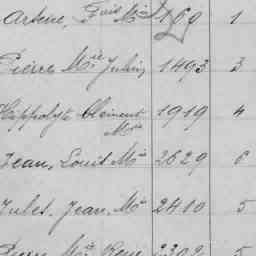 Arsène, Fois Mie 169 1
Pierre Mie Julien 1493 3
Hippolyte Clément Mie 1919 4
Jean, Louis Mie 2629 6
Jules, Jean, Mie 2410 5
Pierre Mie René 2302 5